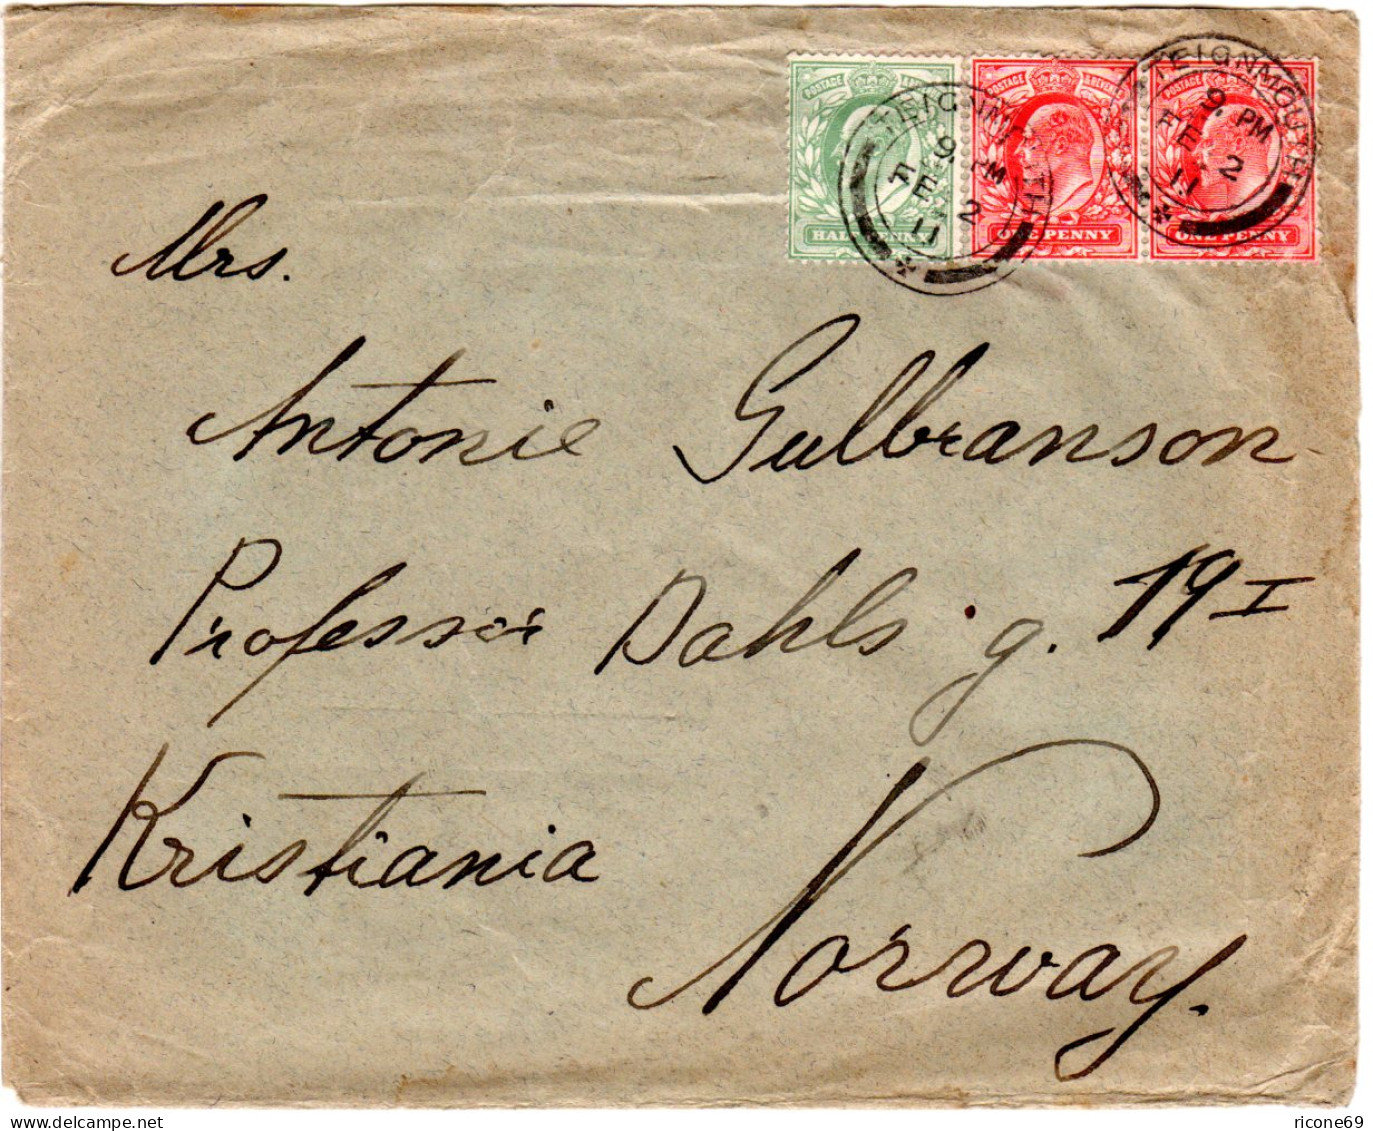 POSTAGE & REVENUE
HALFPENNY
POSTAGE & REVENUE
ONE PENNY
POSTAGE
ONE PENNY
TEIGNMOUTH
9 PM
FE 2
11
TEIGNMOUTH
9. PM
FE 2
11
Mrs.
Antonie Gulbranson
Professor Dahls g. 19 I
Kristiania
Norway.
ricone69